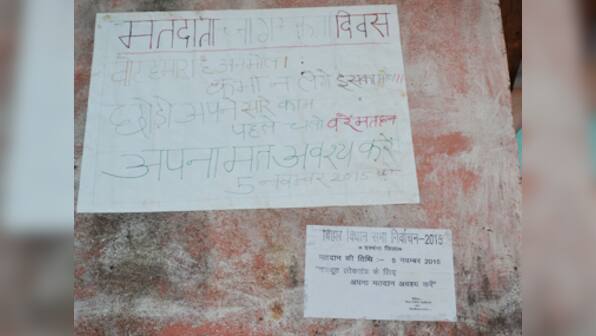 मतदाता जागरूकता दिवस
वोट हमारा है अनमोल।
कभी न लेंगे इसका मोल।।
छोड़ो अपने सारे काम
पहले चलो करें मतदान
अपना मत अवश्य करें
5 नवम्बर 2015 को
बिहार विधान सभा निर्वाचन-2015
मतदान की तिथि :- 5 नवम्बर 2015
लोकतंत्र के लिए
अपना मतदान अवश्य करें"